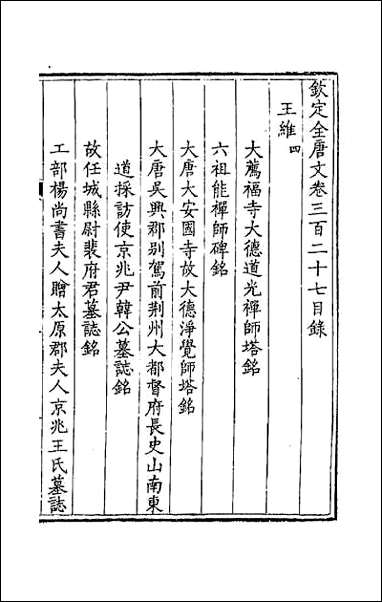 欽定全唐文卷三百二十七目錄
王維四
大薦福寺大德道光禪師塔銘
六祖能禪師碑銘
大唐大安國寺故大德淨覺師塔銘
大唐吳興郡別駕前荊州大都督府長史山南東
道採訪使京兆尹韓公墓誌銘
故任城縣尉裴府君墓誌銘
工部楊尚書夫人贈太原郡夫人京兆王氏墓誌